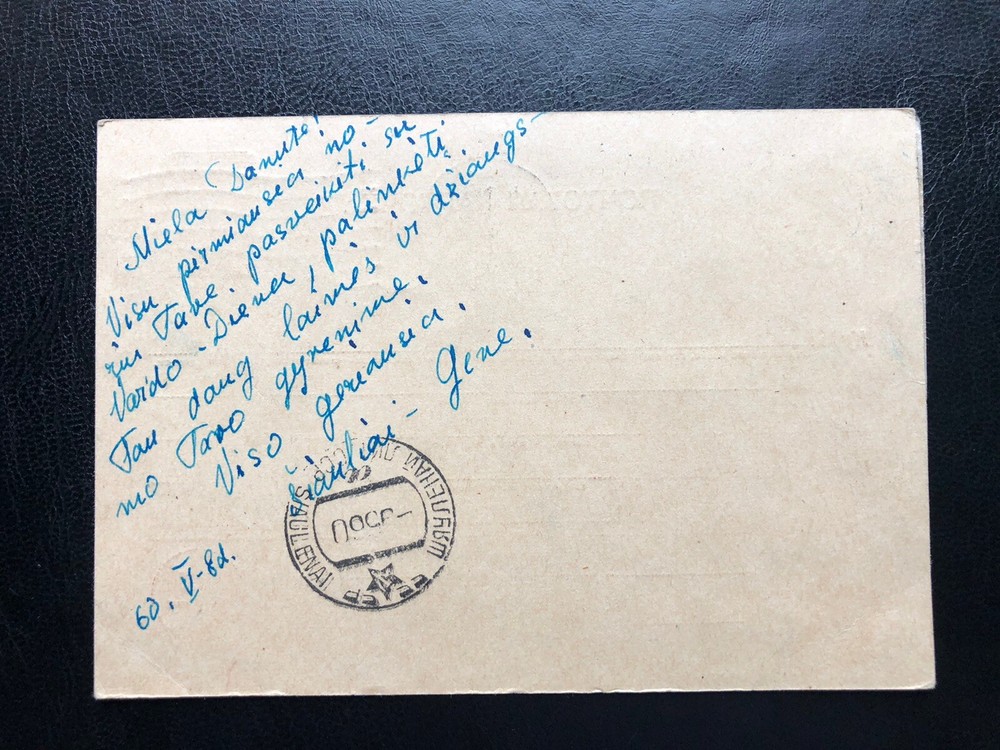 Miela Danute!
Visu pirmiausia no-
riu Tave pasveikiti su
Vardo-Diena, palinkėti
Tau daug laimės ir džiaugs-
mo Tavo gyvenime.
Viso geriausia.
Šiauliai - Gene.
60. V-8d.